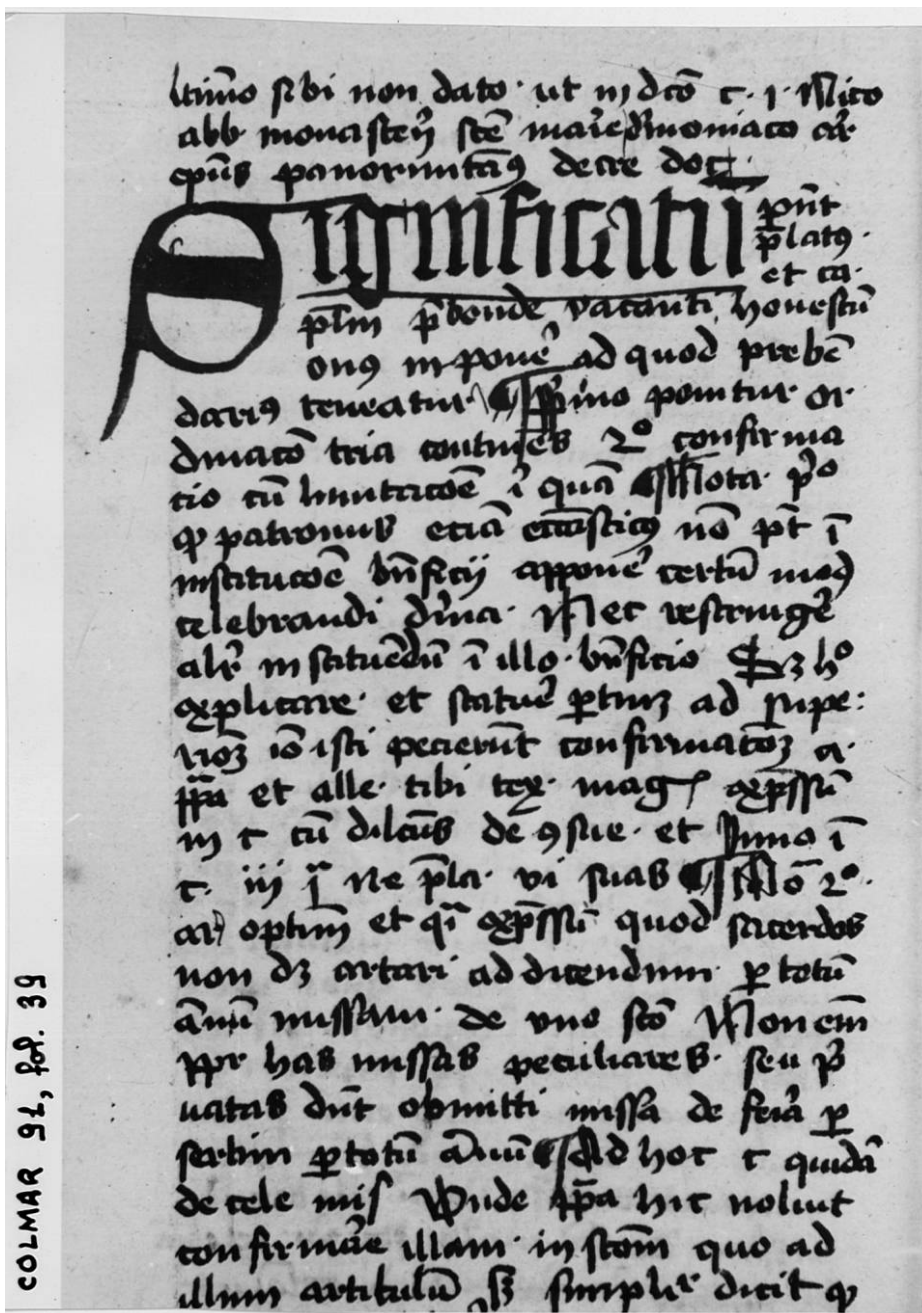 sibi non dato · ut in dco̅ c · 1 ·
abb monasterij sce̅
ep̅us panormitan9 decre doc
Significatu̅ pn̅t
p̅lat9 ·
et ca ·
p̅lm p̅bende vacanti honestu̅
on9 inpone᷑ ad quod prebe̅
dari9 teneatur ¶ p͛mo ponitur or
dinaco̅ tria contine̅s 2º confirma
tio cu̅ limitacoe̅ i̅ qua̅ ¶ Nota · p͛º
ꝙ patronus ecia̅ no̅ pt̅ i̅
institucoe̅ bn̅ficij appone᷑ certu̅ mod
celebrandi di̅na · Nec restringe᷑
alr̅ instituendu̅ i̅ illo · bn̅ficio Sꝫ hº
explicare · et statue᷑ ꝑtinꝫ ad supe:
rioꝫ io̅ isti pecierunt confirmaco̅ꝫ a ·
pp̅a et alle · tibi tex · mag exp̅ssu̅
in c cu̅ dilc̅us de 9sue · et Inno i̅
c · iij q̅ Ne p̅la · vi suas ¶ No̅ 2º ·
optim̅ et exp̅ssu̅ quod sacerdos
non dꝫ artari ad dicendum ꝑ totu̅
a̅nu̅ missam · de vno sco̅ Non em̅
ppr has missas peculiares · seu p͛
uatas dn̅t obmitti missa de fe͛ia ꝑ
ꝑ totu̅ a̅nu̅ ¶ Ad hoc c quida̅
de cele mis Vnde pp̅a hic noluit
confirma᷑e illam · in stom̅ quo ad
illum articulu̅ sꝫ simplic͛ dicit ꝙ
COLMAR 92, fol. 39